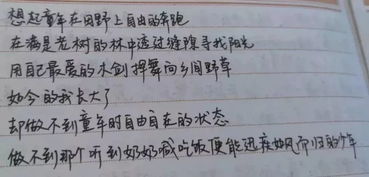 想起童年在田野上自由的奔跑
在满是老树的林中透过缝隙寻找阳光
用自己最爱的木剑挥舞向乡间野草
如今的我长大了
却做不到童年时自由自在的状态
做不到那个听到奶奶喊吃饭便能迅疾如风而归的少年